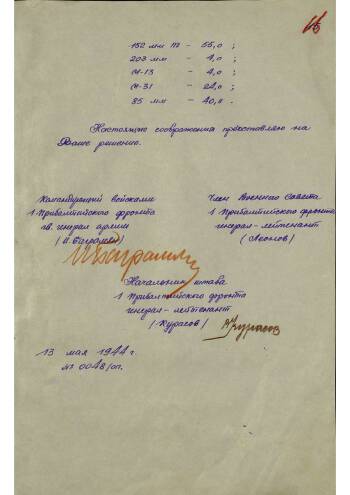 152 мм ПГ - 55,0 ;
203 мм - 4,0 ;
М-13 - 4,0 ;
М-31 - 24,0 ;
85 мм - 40,0.
Настоящие соображения представляю на
Ваше решение.
Командующий войсками
1 Прибалтийского фронта
генерал армии
( И. Баграмян )
Член Военного Совета
1 Прибалтийского фронта
генерал-лейтенант
( Леонов )
И Баграмян
Начальник штаба
1 Прибалтийского фронта
генерал-лейтенант
( Курасов )
Курасов
13 мая 1944 г.
№ 0048/оп.